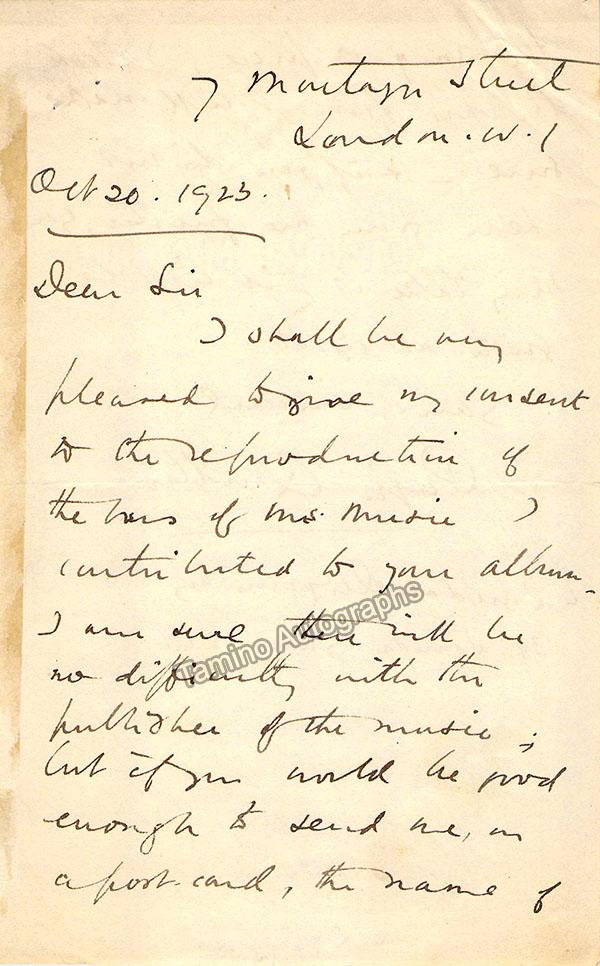 7 Montagu Street
London. W. 1
Oct 20. 1923.
Dear Sir
I shall be very
pleased to give my consent
to the reproduction of
the bars of ms. music I
contributed to your album.
I am sure there will be
no difficulty with the
publisher of the music;
but if you would be good
enough to send me, on
a post-card, the name of
Tamino Autographs